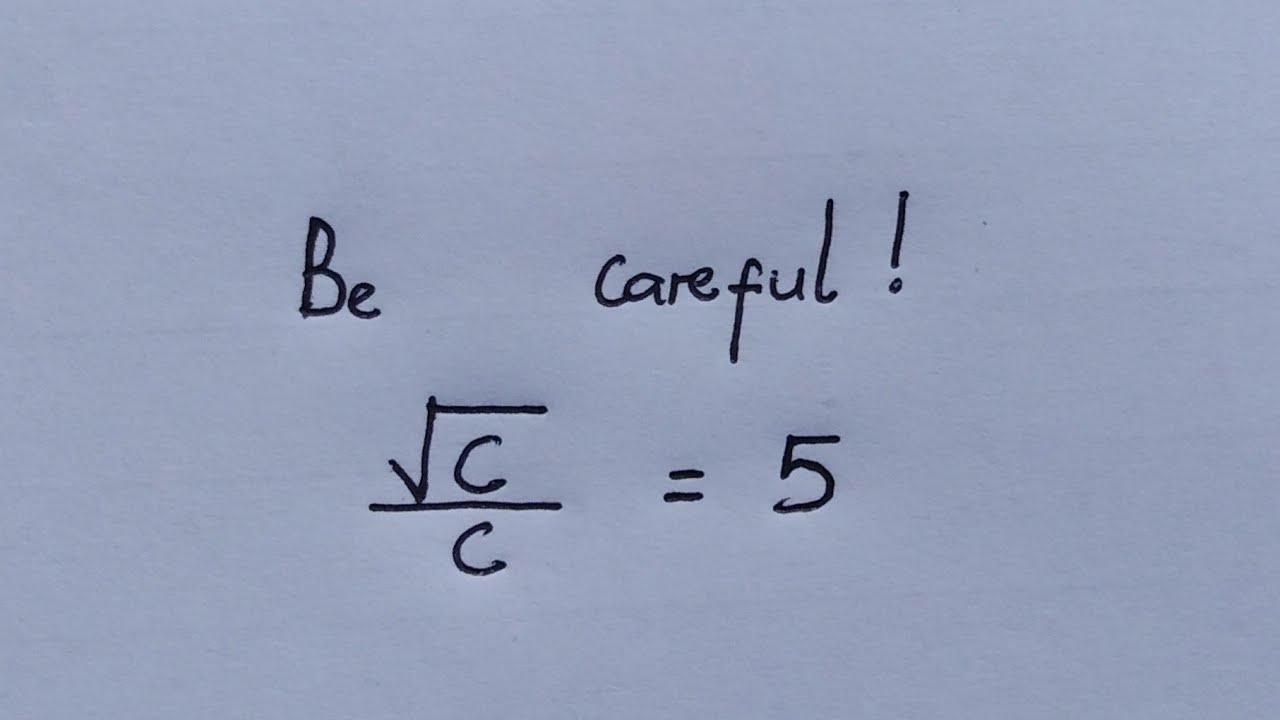 Be careful!
√C/C = 5